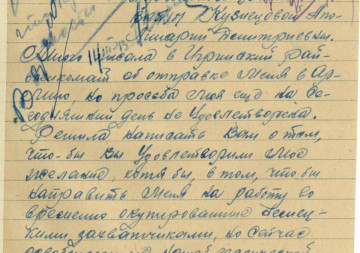 от Кузнецовой Апо-
линарии Дмитриевны.
Много писала в Игринский рай-
военкомат об отправке меня в Ар-
мию, но просьба моя ещё на се-
годняшний день не удовлетворена.
Решила написать Вам о том,
что-бы Вы удовлетворили моё
желание, хотя бы, в том, что бы
направить меня на работу во
временно окупированные немец-
кими захватчиками, но сейчас